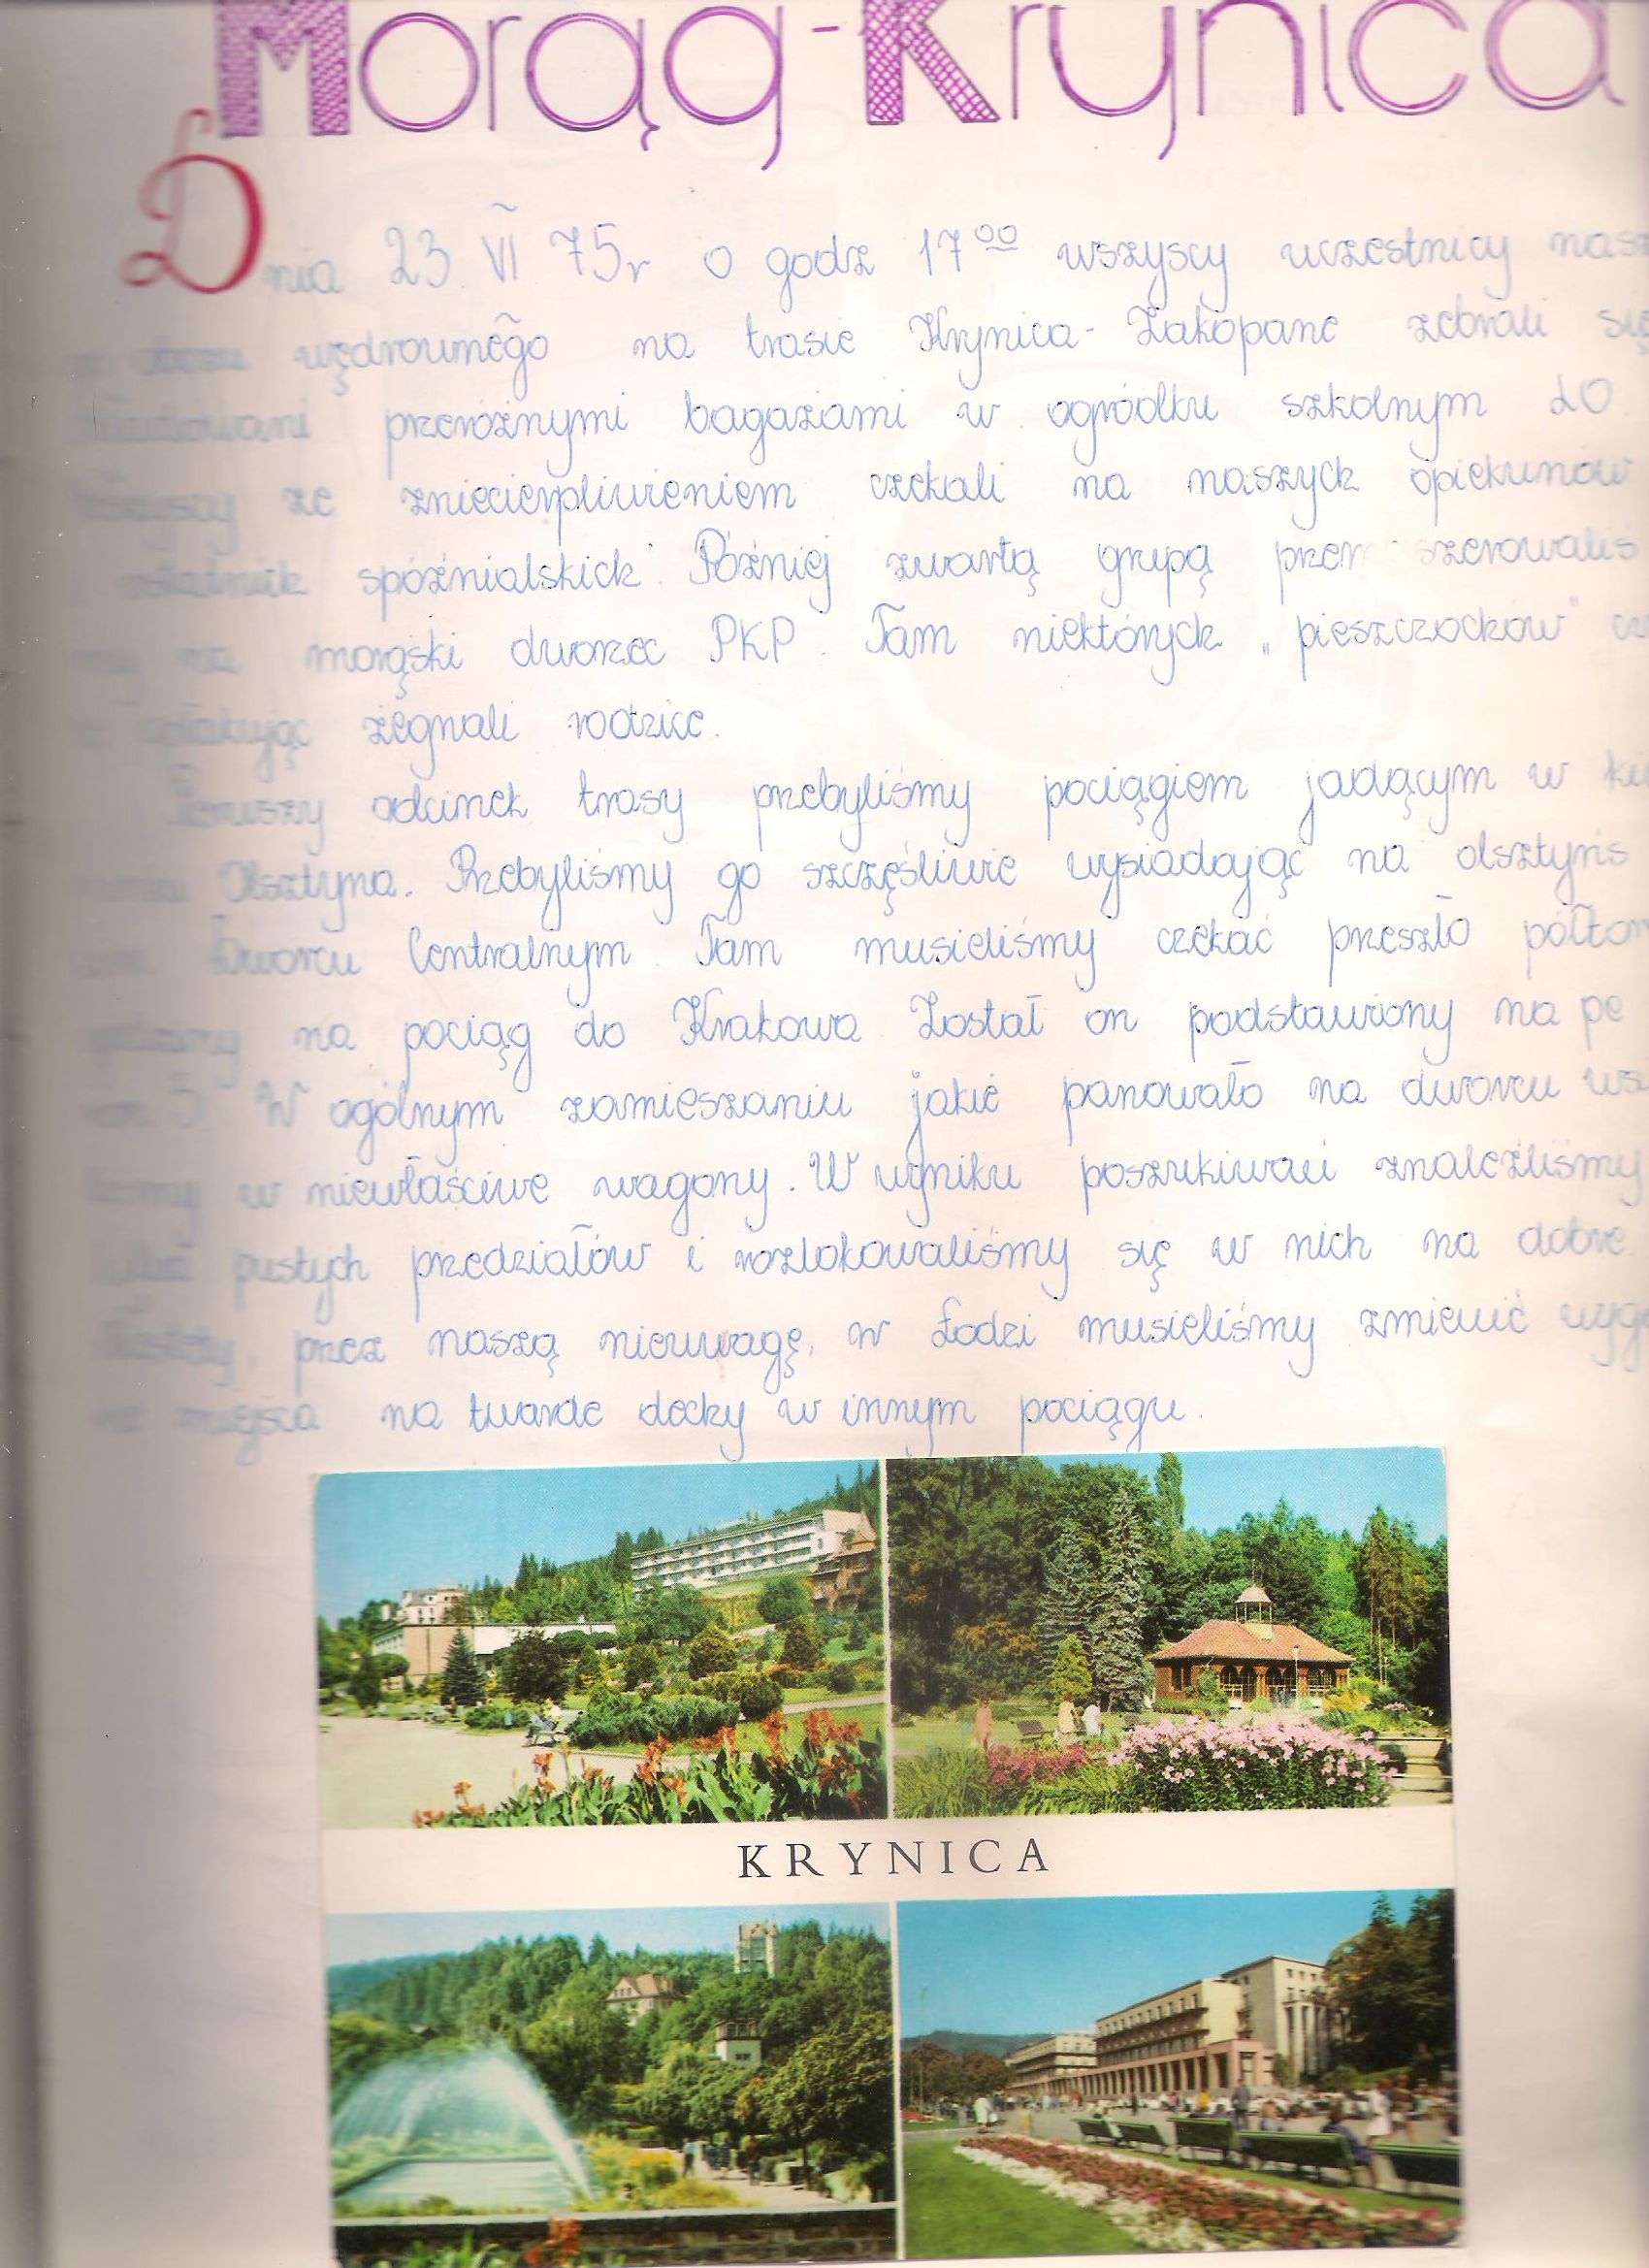 Morąg-Krynica
Dnia 23 VI 75r o godz 17⁰⁰ wszyscy uczestnicy nasz
wędrownego na trasie Krynica-Zakopane zebrali się
przeróżnymi bagażami w ogródku szkolnym LO.
ze zniecierpliwieniem czekali na naszych opiekunów
spóźnialskich. Później zwartą grupą przemaszerowaliś
my na morąski dworzec PKP. Tam niektórych „pieszczochów" cz
żegnali rodzice.
Pierwszy odcinek trasy przebyliśmy pociągiem jadącym w kie
Olsztyna. Przebyliśmy go szczęśliwie wysiadając na olsztyńs
Dworcu Centralnym. Tam musieliśmy czekać przeszło półtor
godziny na pociąg do Krakowa. Został on podstawiony na pe
ron 3. W ogólnym zamieszaniu jakie panowało na dworcu wsi
liśmy w niewłaściwe wagony. W wyniku poszukiwań znaleźliśmy
pustych przedziałów i rozlokowaliśmy się w nich na dobre.
Niestety, przez naszą nieuwagę, w Łodzi musieliśmy zmienić wygo
ne miejsca na twarde dechy w innym pociągu.
KRYNICA